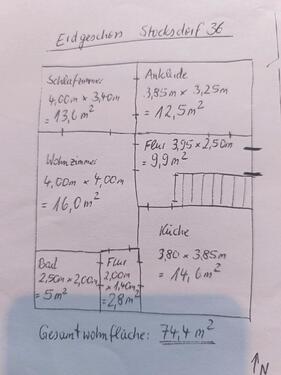 Erdgeschoss Stocksdorf 36
Schlafzimmer
4,00m x 3,40m
= 13,6 m²
Ankleide
3,85m x 3,25m
= 12,5 m²
Flur 3,95 x 2,50m
= 9,9 m²
Wohnzimmer
4,00m x 4,00m
= 16,0 m²
Küche
3,80 x 3,85m
= 14,6 m²
Bad
2,50m x 2,00m
= 5 m²
Flur
2,00m
x 1,40m
= 2,8 m²
Gesamtwohnfläche: 74,4 m²
N